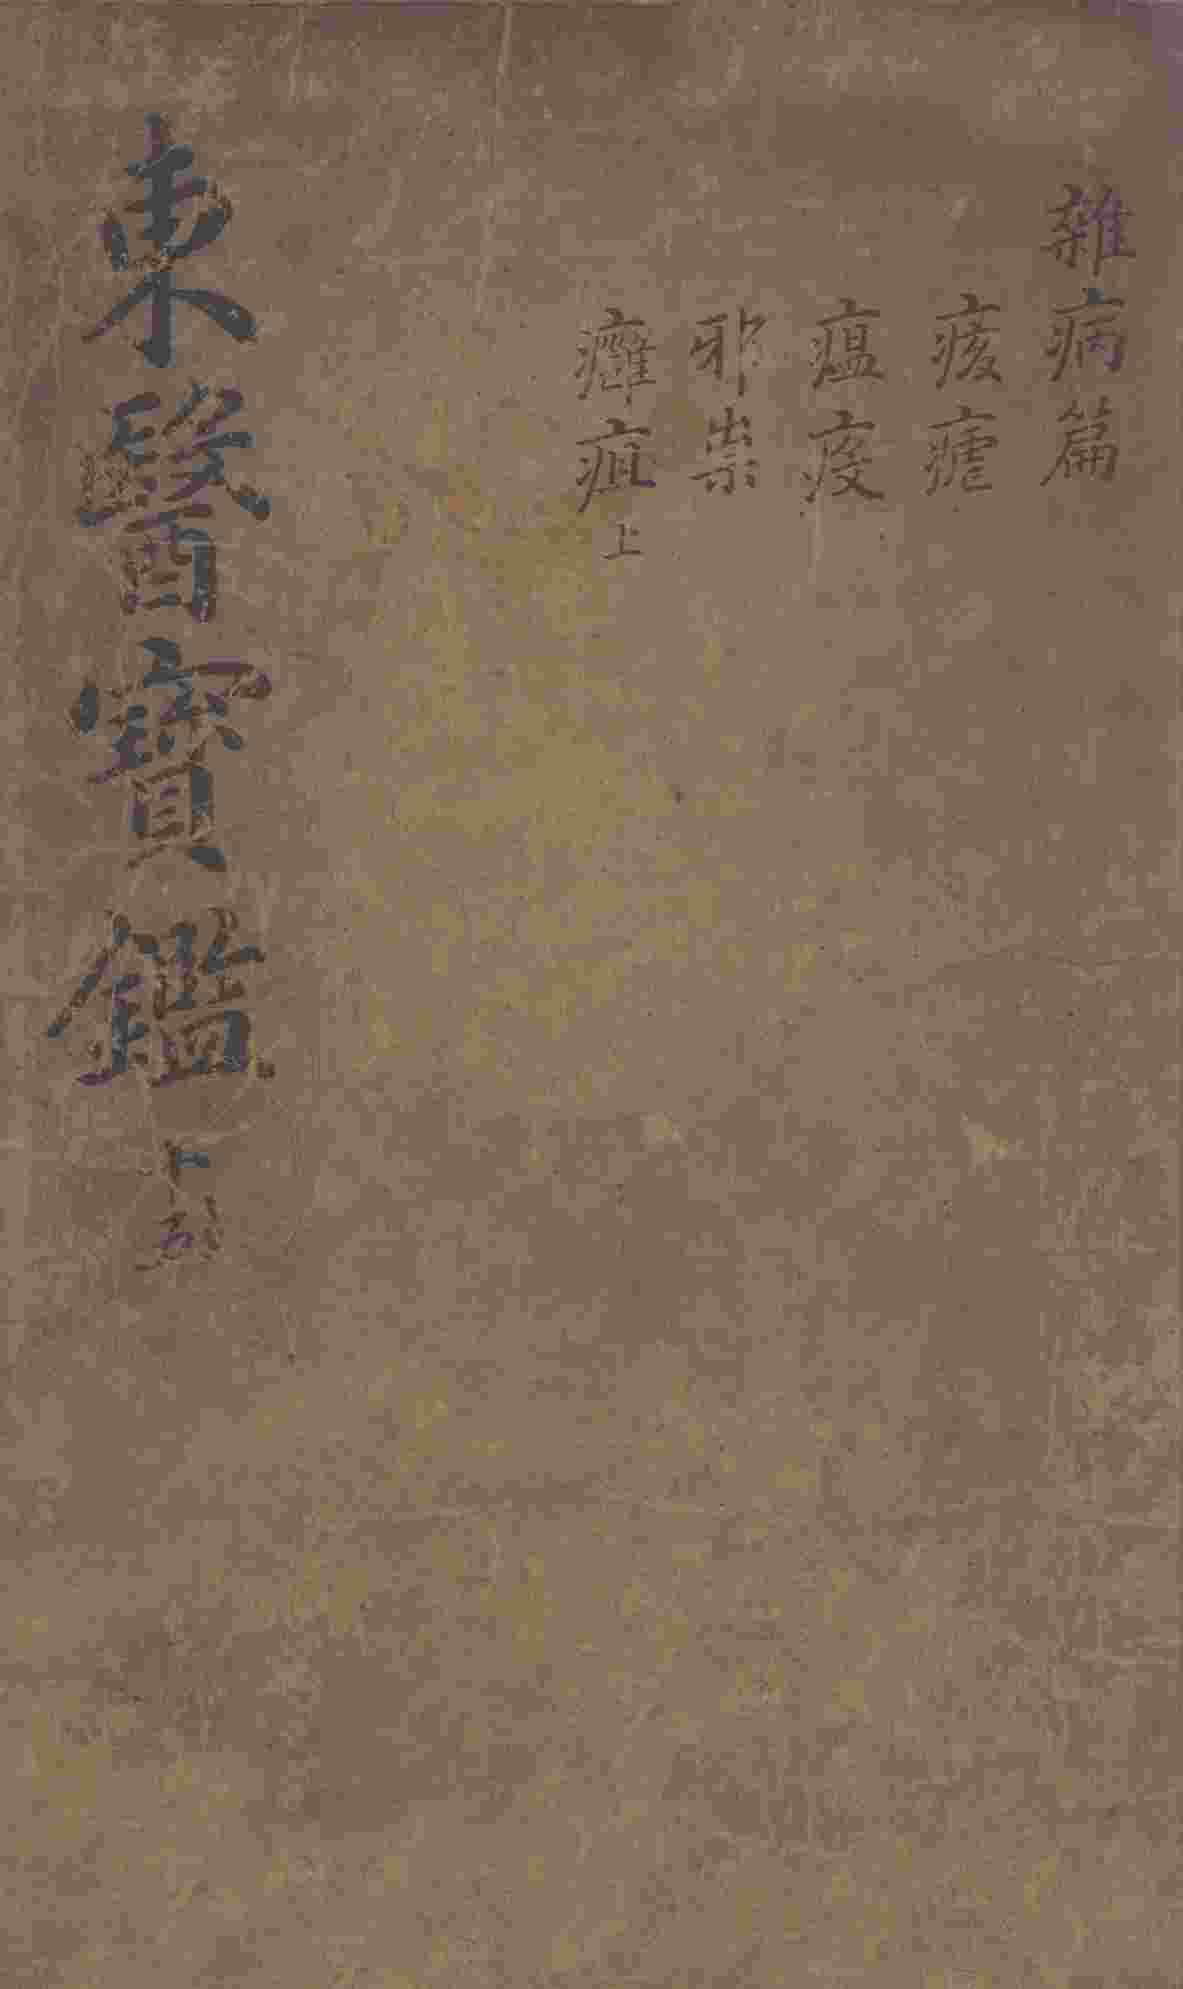 雜病篇
痎瘧
瘟疫
邪祟
癰疽上
東醫寶鑑